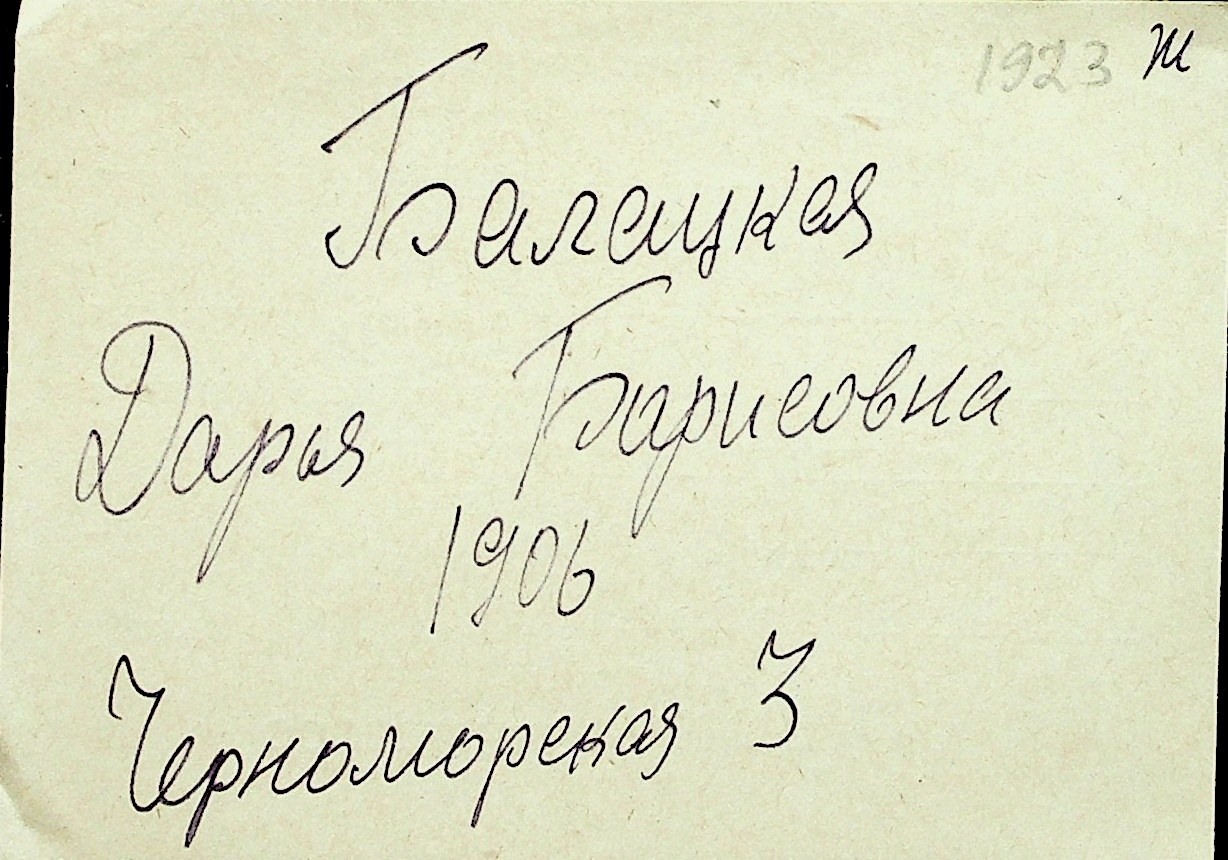 1923 Ж
Балацкая
Дарья Борисовна
1906
Черноморская 3